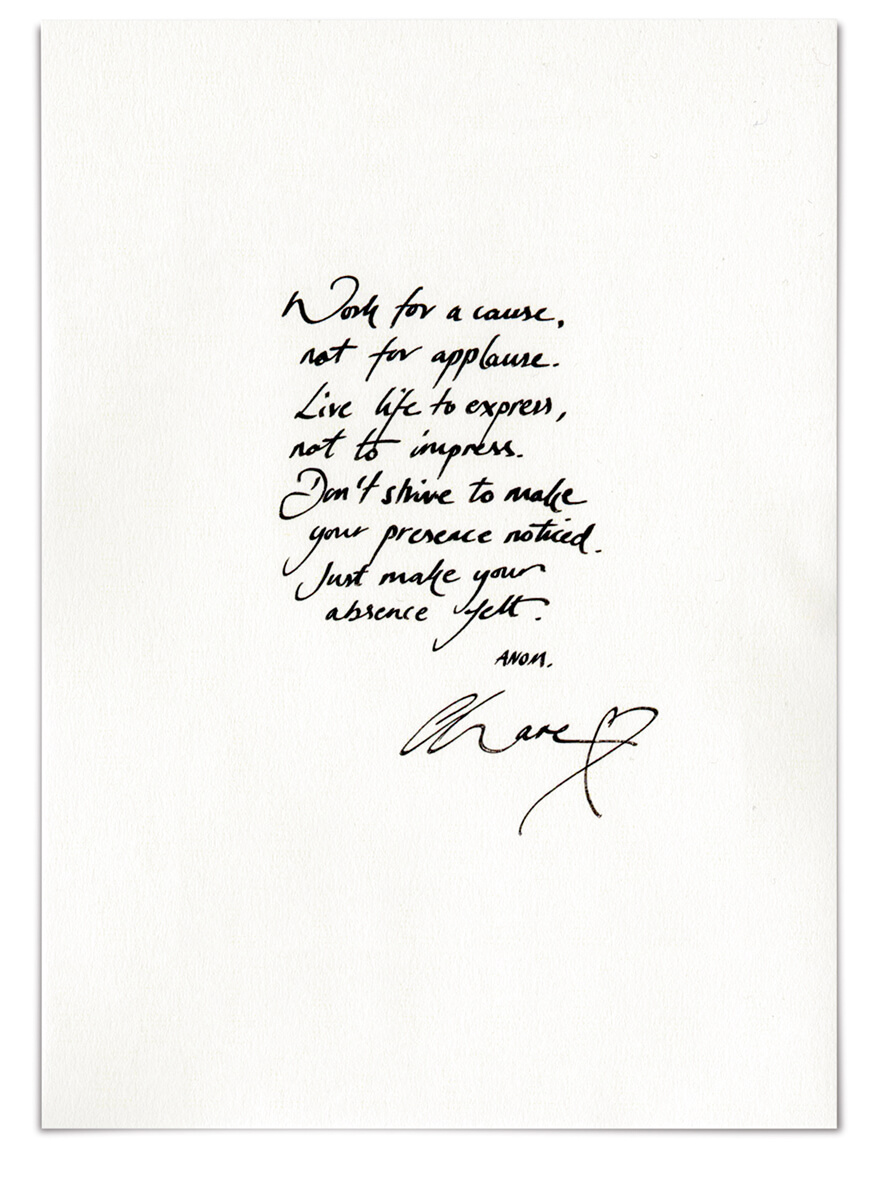 Work for a cause,
not for applause.
Live life to express,
not to impress.
Don't strive to make
your presence noticed.
Just make your
absence felt.
ANON.